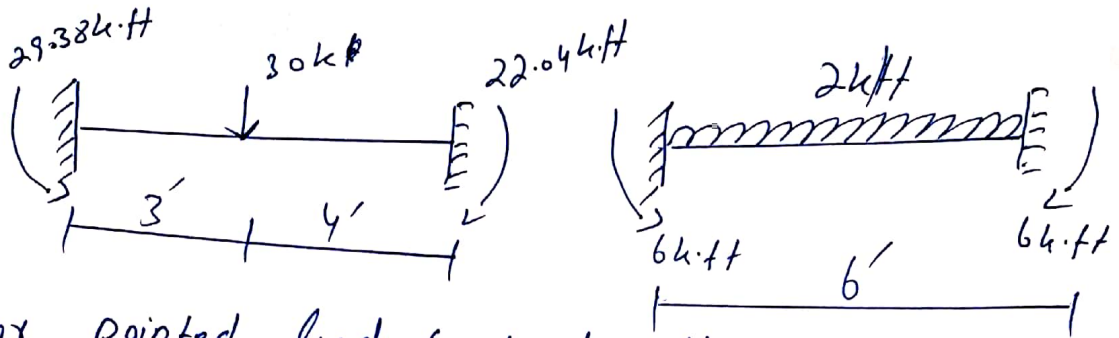 29.38k.ft
30k
22.04k.ft
2k/ft
3′ 4′
6k.ft 6k.ft
6′
pointed load